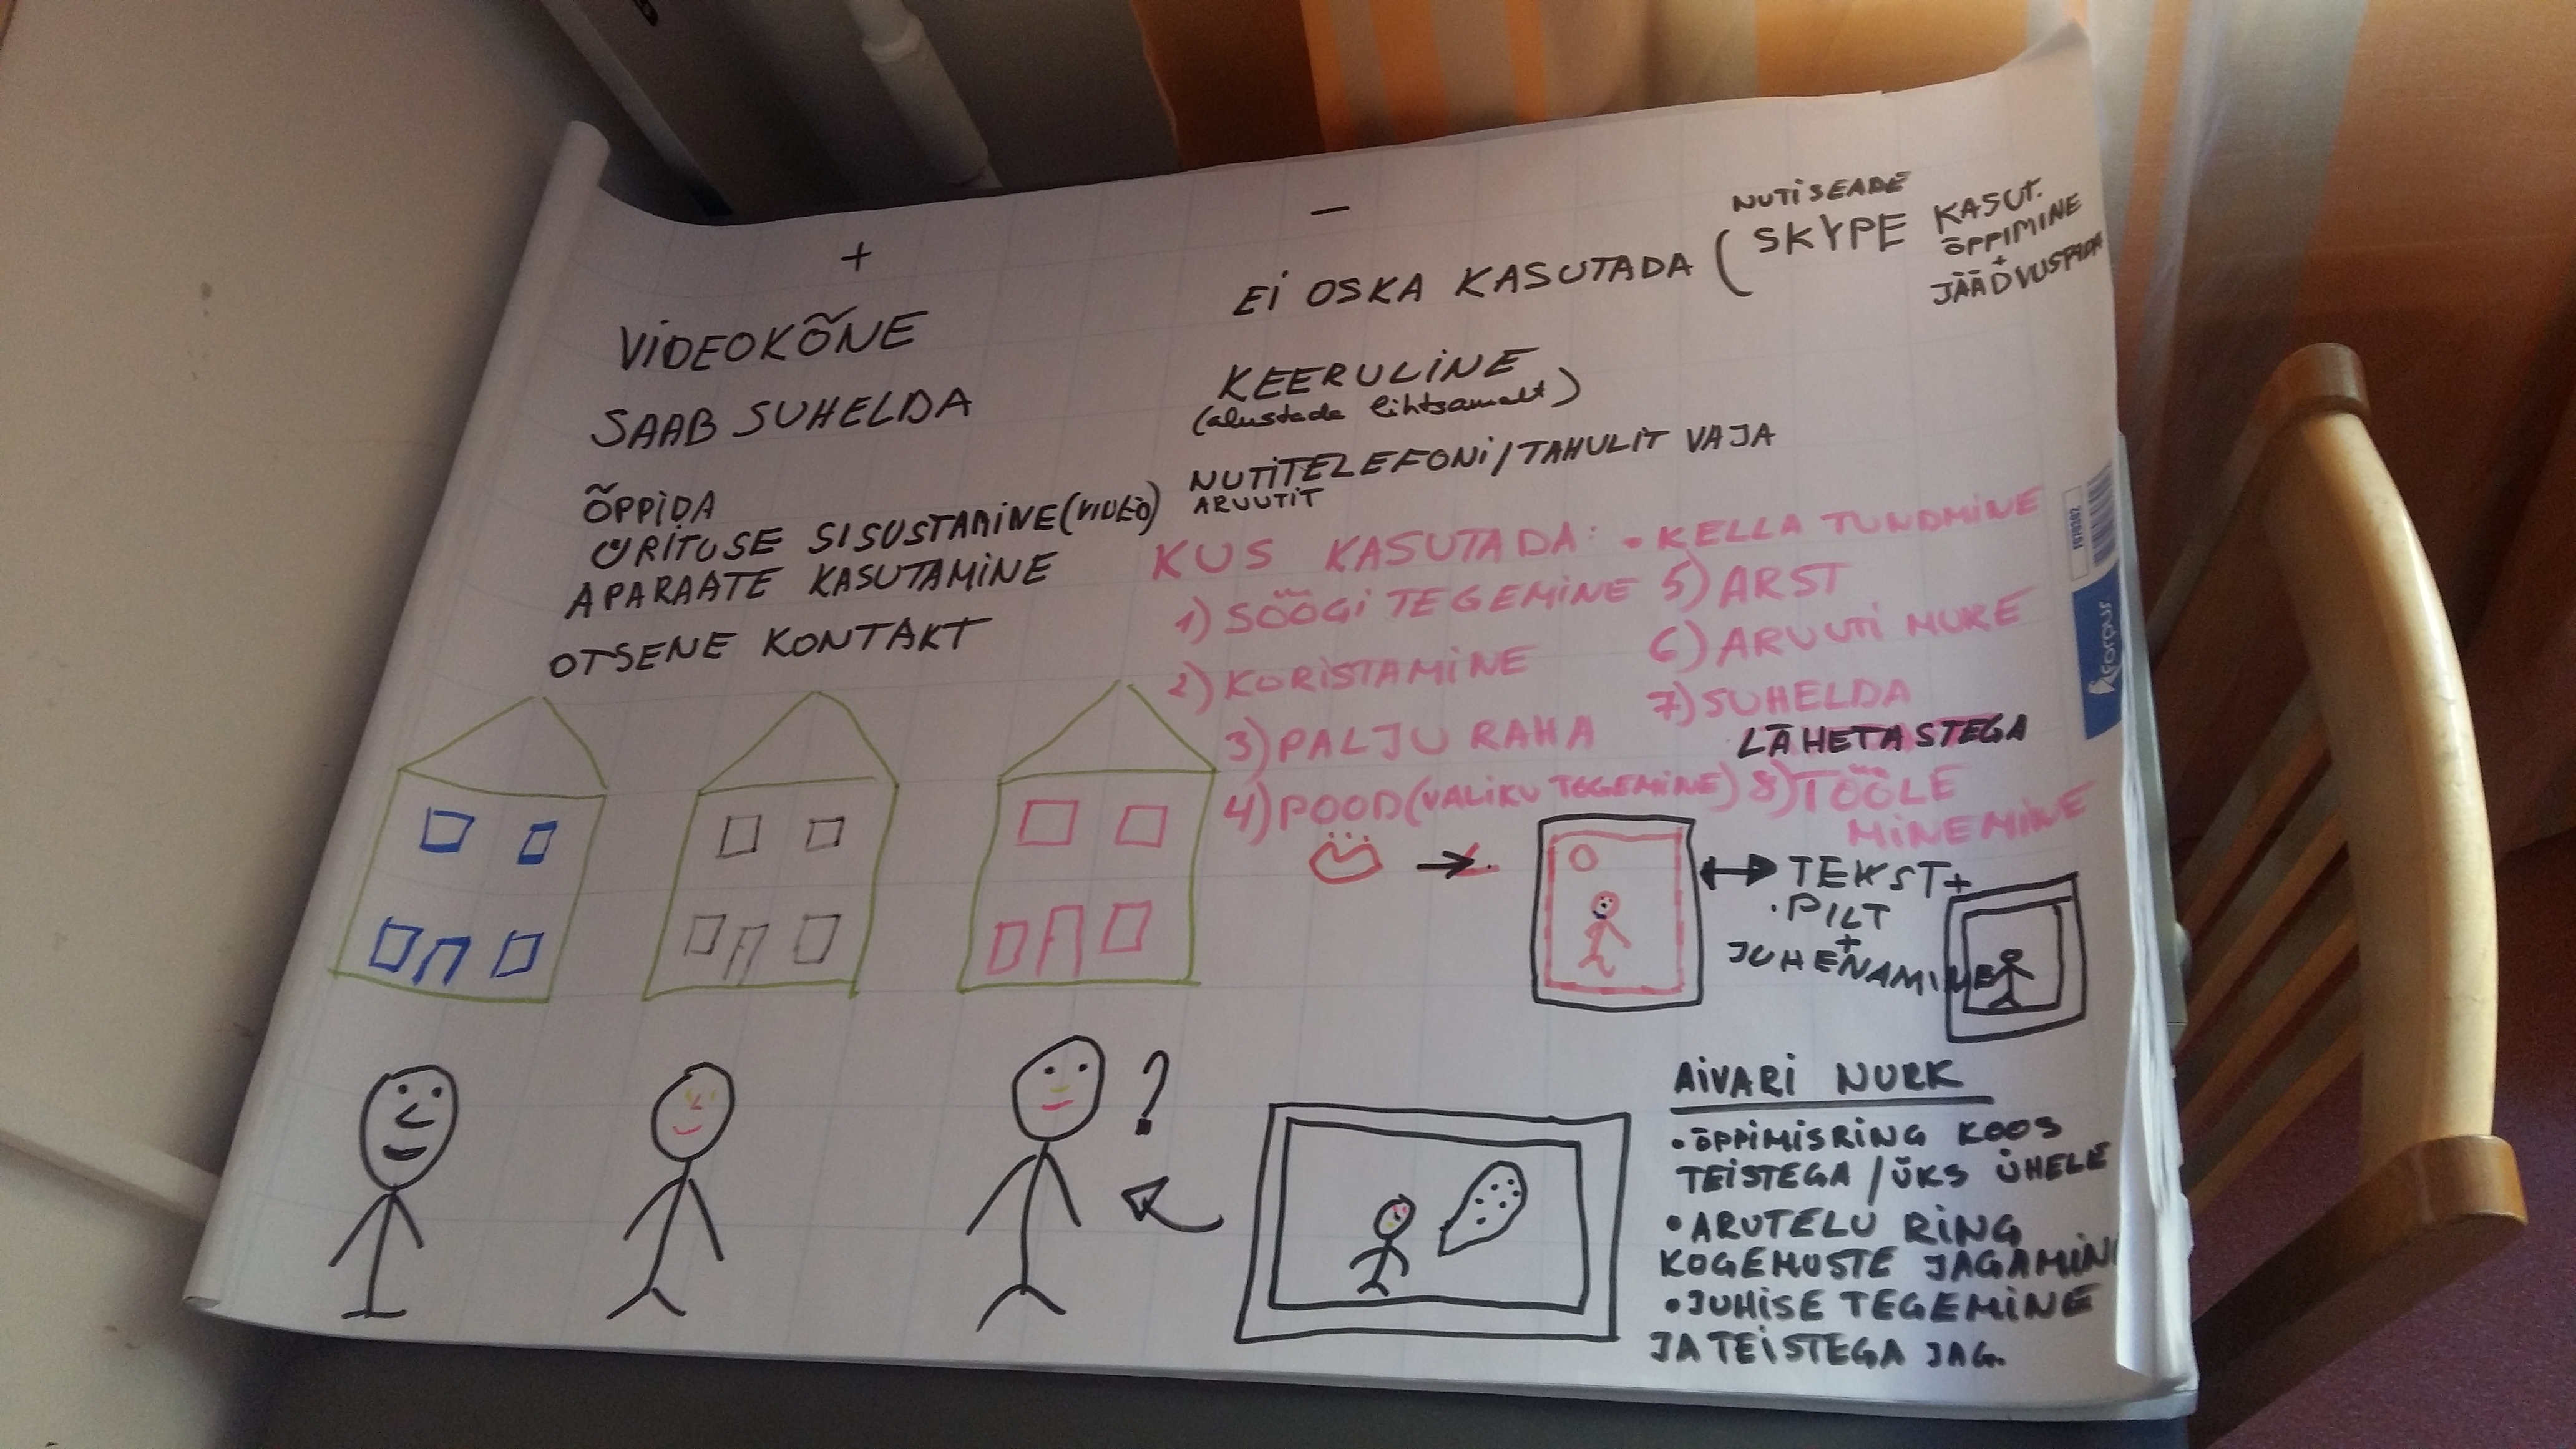 +
VIDEOKÕNE
SAAB SUHELDA
ÕPPIDA
ÜRITUSE SISUSTAMINE (VIDEO)
APARAATE KASUTAMINE
OTSENE KONTAKT
–
EI OSKA KASUTADA (
NUTISEADE
SKYPE KASUT.
ÕPPIMINE
+
KEERULINE
(alustada lihtsamalt)
NUTITELEFONI/TAHULIT VAJA
ARUUTIT
KUS KASUTADA: • KELLA TUNDMINE
1) SÖÖGI TEGEMINE
2) KORISTAMINE
3) PALJU RAHA
4) POOD (VALIKU TEGEMINE)
5) ARST
6) ARUUTI
7) SUHELDA
LÄHETASTEGA
8) TÖÖLE
MINEMINE
TEKST+
PILT
+
JUHENAMINE
?
AIVARI NURK
• ÕPPIMISRING KOOS
TEISTEGA / ÜKS ÜHELE
• ARUTELU RING
KOGEMUSTE JAGAMIN
• JUHISE TEGEMINE
JA TEISTEGA JAG.
forpus